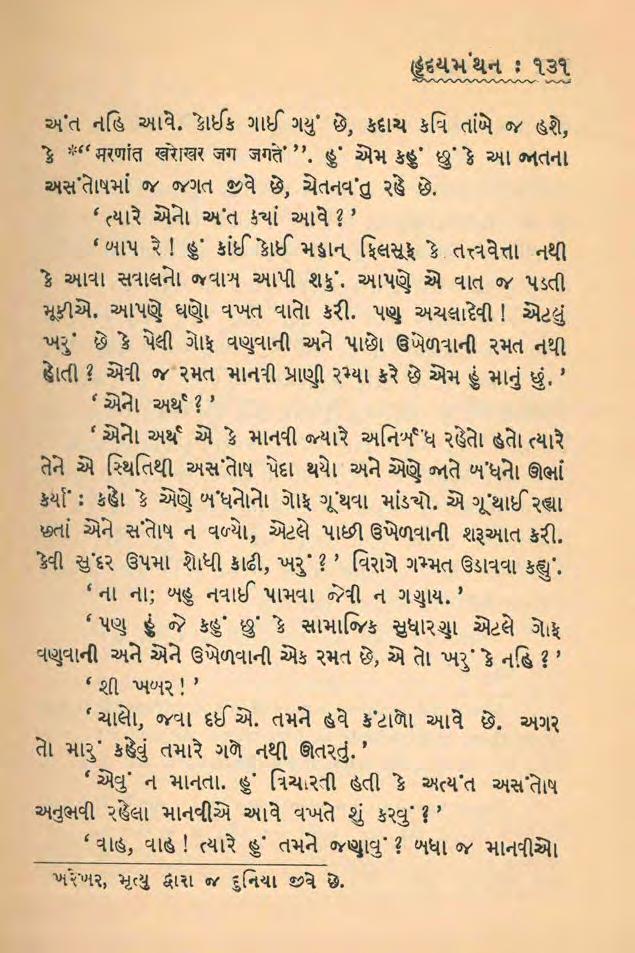 હૃદયમંથન : ૧૩૧
અંત નહિ આવે. કોઈક ગાઈ ગયું છે, કદાચ કવિ તાંબે જ હશે,
કે *“ मरणांत खरोखर जग जगतें ”. હું એમ કહું છું કે આ જાતના
અસંતોષમાં જ જગત જીવે છે, ચેતનવંતુ રહે છે.
‘ ત્યારે એનો અંત કયાં આવે ? ’
‘ બાપ રે ! હું કાંઈ કોઈ મહાન્ ફિલસૂફ કે તત્ત્વવેત્તા નથી
કે આવા સવાલનો જવાબ આપી શકું. આપણે એ વાત જ પડતી
મૂકીએ. આપણે ઘણો વખત વાતો કરી. પણ અચલાદેવી ! એટલું
ખરું છે કે પેલી ગોફ વણવાની અને પાછો ઉખેળવાની રમત નથી
હોતી ? એવી જ રમત માનવી પ્રાણી રમ્યા કરે છે એમ હું માનું છું. ’
‘ એનો અર્થ ? ’
‘ એનો અર્થ એ કે માનવી જ્યારે અનિર્બંધ રહેતો હતો ત્યારે
તેને એ સ્થિતિથી અસંતોષ પેદા થયો અને એણે જાતે બંધનો ઊભાં
કર્યાં : કહો કે એણે બંધનોનો ગોફ ગૂંથવા માંડચો. એ ગૂંથાઈ રહ્યા
છતાં એને સંતોષ ન વળ્યો, એટલે પાછી ઉખેળવાની શરૂઆત કરી.
કેવી સુંદર ઉપમા શોધી કાઢી, ખરું ? ’ વિરાગે ગમ્મત ઉડાવવા કહ્યું.
‘ ના ના; બહુ નવાઈ પામવા જેવી ન ગણાય. ’
‘ પણ હું જે કહું છું કે સામાજિક સુધારણા એટલે ગોફ
વણવાની અને એને ઉખેળવાની એક રમત છે, એ તો ખરું કે નહિ ? ’
‘ શી ખબર ! ’
‘ ચાલો, જવા દઈએ. તમને હવે કંટાળો આવે છે. અગર
તો મારું કહેવું તમારે ગળે નથી ઊતરતું. ’
‘ એવું ન માનતા. હું વિચારતી હતી કે અત્યંત અસંતોષ
અનુભવી રહેલા માનવીએ આવે વખતે શું કરવું ? ’
‘ વાહ, વાહ ! ત્યારે હું તમને જણાવું ? બધા જ માનવીઓ
ખરેખર, મૃત્યુ દ્વારા જ દુનિયા જીવે છે.